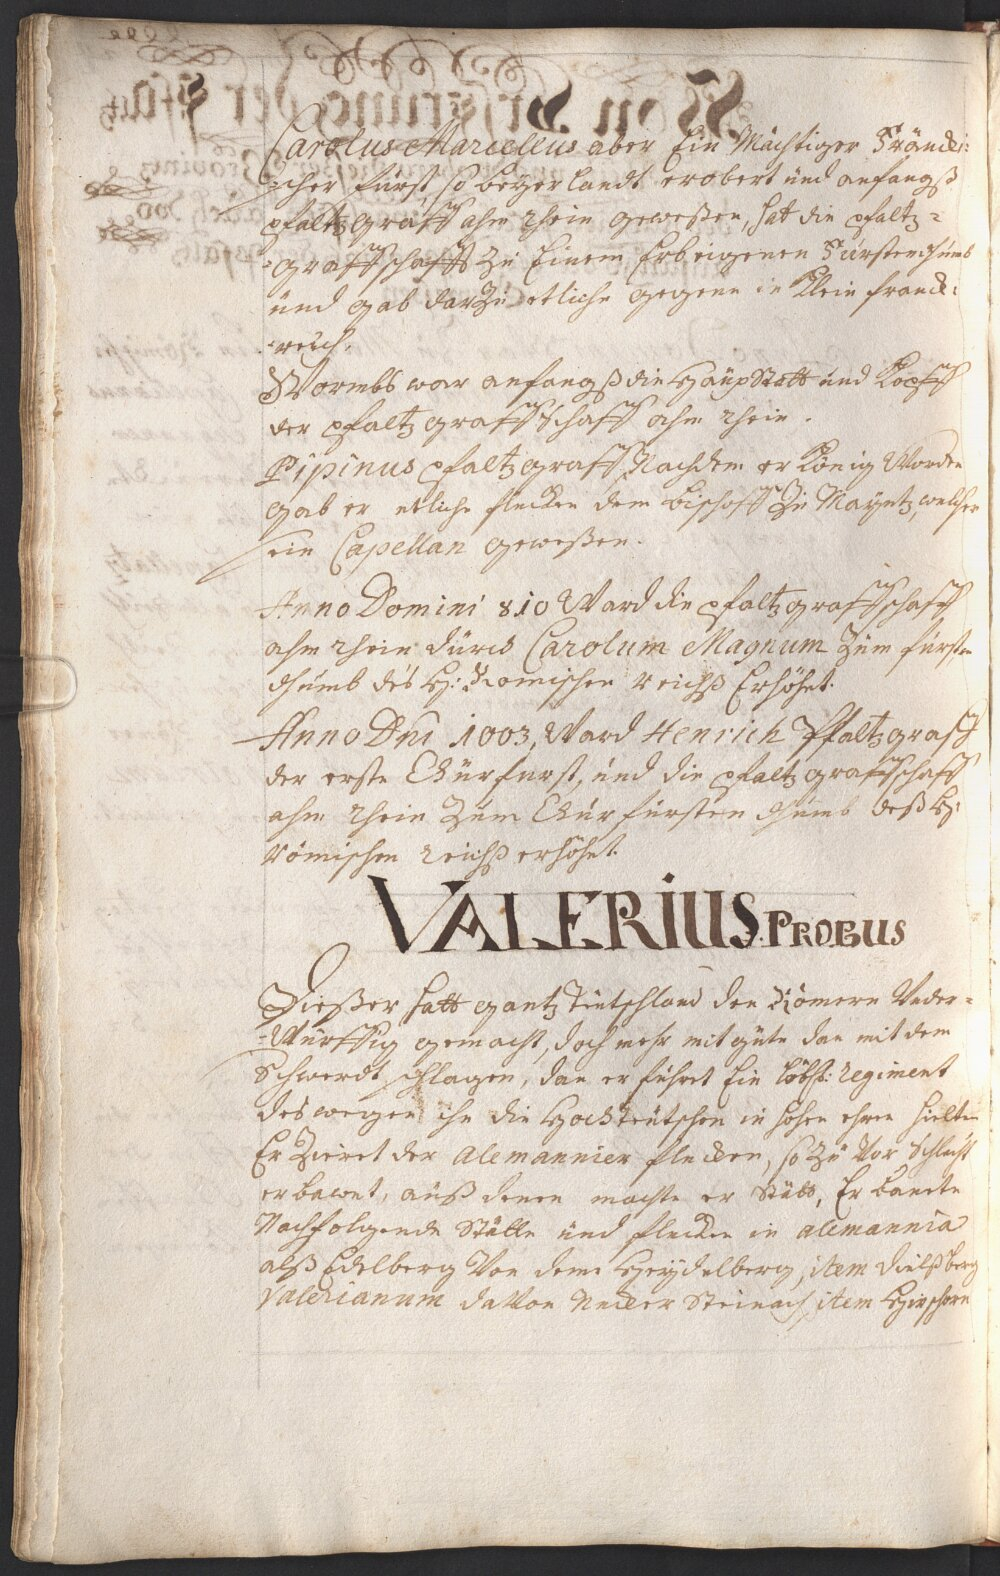 Carolus Marcellus aber Ein Mächtiger Fräncki:
:scher fürst, so beyerlandt erobert und anfangß
pfaltzgraff ahm rhein geweßen, hat die pfaltz=
=graffschafft Zu Einem Erbeigenen Fürstenthumb
und gab darZu etliche gegene in Klein franck:
:reich.
Wormbs war anfangß die Haupstatt und Kopff
der pfaltzgraffschafft ahm rhein.
Pipinus pfaltzgraff, Nachdem er König Worden
gab er etliche flecken dem bischoff Zu Mayntz, welcher
sein Capellan geweßen.
Anno Domini 810 Ward die pfaltzgraffschafft
ahm rhein durch Carolum Magnum Zum fürsten
thumb des H: Römischen reichß Erhöhet.
Anno Dni 1003, Ward Henrich Pfaltzgraff
der erste Churfurst, und die pfaltzgraffschafft
ahm rhein Zum Churfürstenthumb deß H:
Römischen reichß erhöhet.
VALERIUS. PROBUS
Dießer hatt gantz Teutschland den Römern Under=
=Würffig gemacht, doch mehr mit güte dan mit dem
Schwerdt schlagen, dan er führet Ein löbl: regiment
deswegen ihn die Hochteutschen in hohen ehren hielten
Er Zieret der Alemannier flecken, so Zu Vor Schlecht
erbawet, auß denen machte er Stätt, Er bawete
Nachfolgende Stätte und flecken in alemannia
alß Edelberg Von dem Heydelberg, item Dilßberg
Valerianum davon Necker Steinach, item Hirschorn